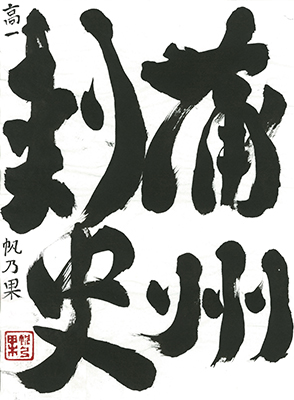 州
刺史
高一
帆乃果